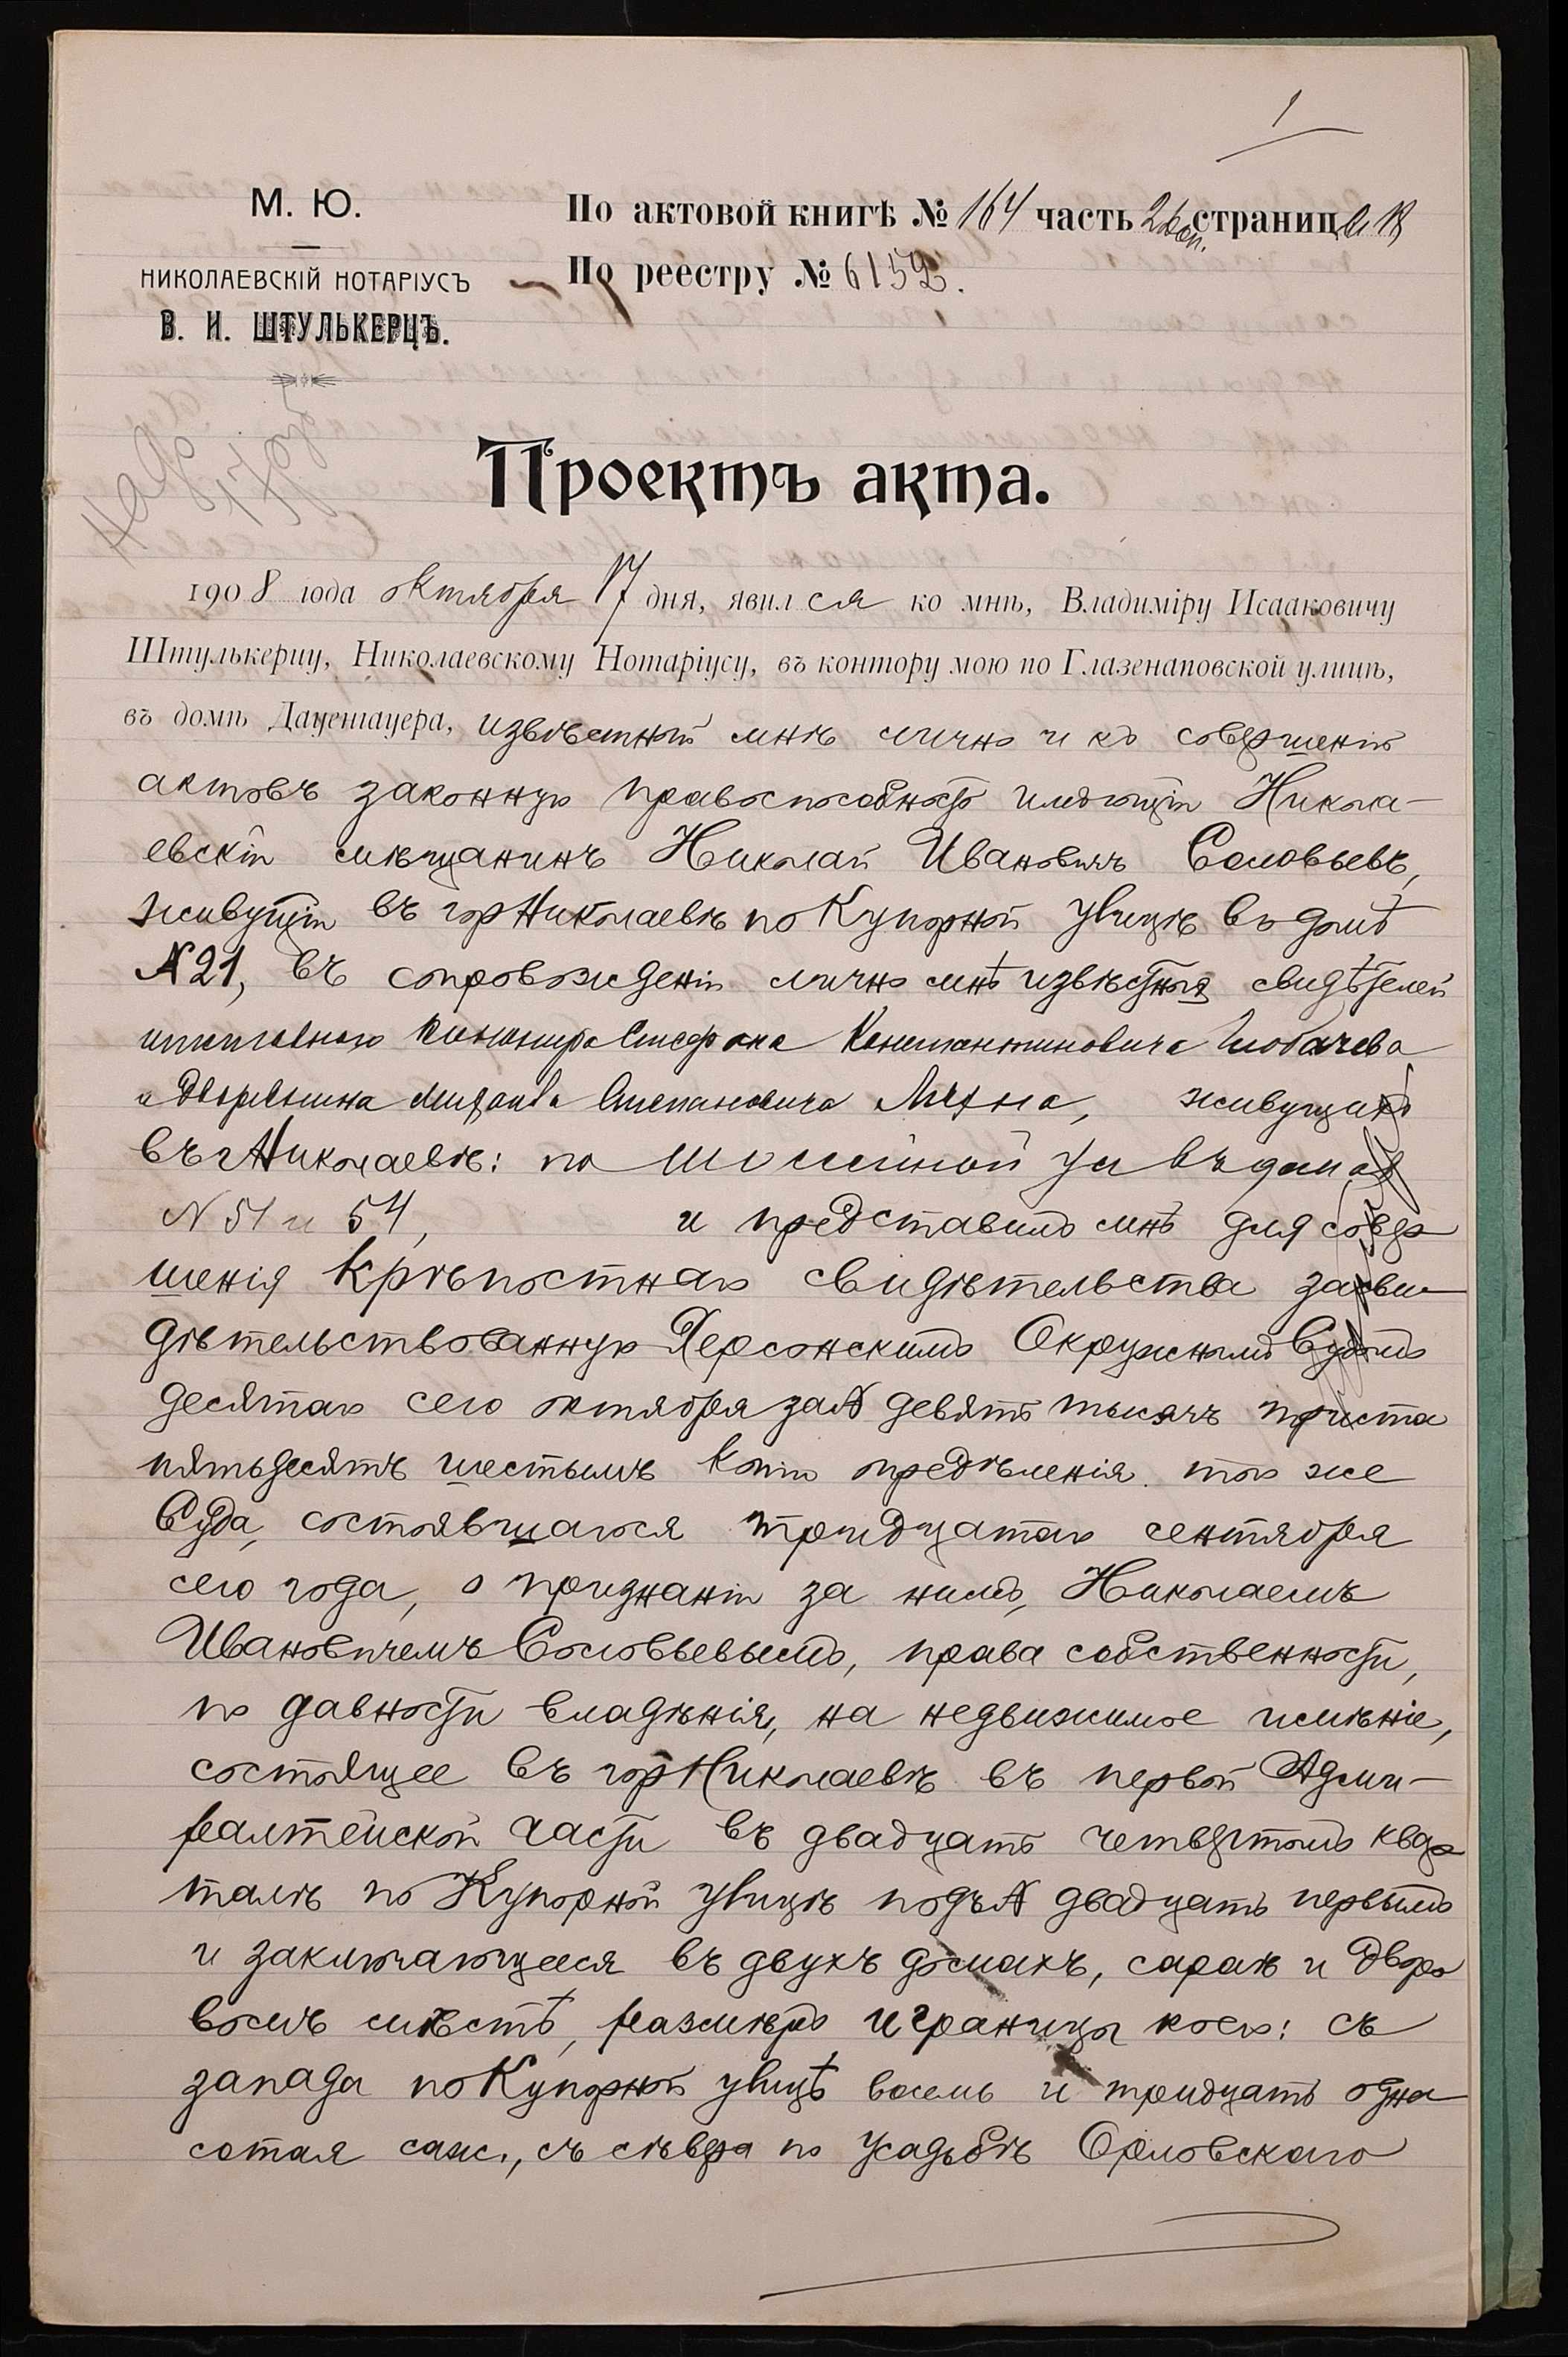 1
М. Ю.
НИКОЛАЕВСКІЙ НОТАРІУСЪ
В. И. ШТУЛЬКЕРЦЪ.
По актовой книгѣ № 164 часть 2 страниц
По реестру № 6152.
Проектъ акта.
1908 года октября 17 дня, явился ко мнѣ, Владиміру Исааковичу
Штулькерцу, Николаевскому Нотаріусу, въ контору мою по Глазенаповской улицѣ,
въ домѣ Даценгауера, извѣстный мнѣ лично и къ совершенію
актовъ законную правоспособность имѣющій Никола-
евскій мѣщанинъ Николай Ивановичъ Соловьевъ,
живущій въ гор Николаевѣ по Купорной улицѣ въ домѣ
№ 21, въ сопровожденіи лично мнѣ извѣстныхъ свидѣтелей
Константиновича
и дворянина Степановича живущихъ
въ г Николаевѣ: по ул въ домахъ
№ 51 и 54, и представилъ мнѣ для совер
шенія крѣпостнаго свидѣтельства засви
дѣтельствованную Херсонскимъ Окружнымъ Судомъ
десятаго сего октября за № девять тысячъ триста
пятьдесятъ шестымъ копію опредѣленія того же
Суда, состоявшагося тридцатаго сентября
сего года, о признаніи за нимъ, Николаемъ
Ивановичемъ Соловьевымъ, права собственности,
по давности владѣнія, на недвижимое имѣніе,
состоящее въ гор Николаевѣ въ первой Адми-
ралтейской части въ двадцать четвертомъ квар
талѣ по Купорной улицѣ подъ № двадцать первымъ
и заключающееся въ двухъ домахъ, сараѣ и дворо
вомъ мѣстѣ, размѣръ и границы коего: съ
запада по Купорной улицѣ восемь и тридцать одна
сотая саж., съ сѣвера по усадьбѣ Орловскаго